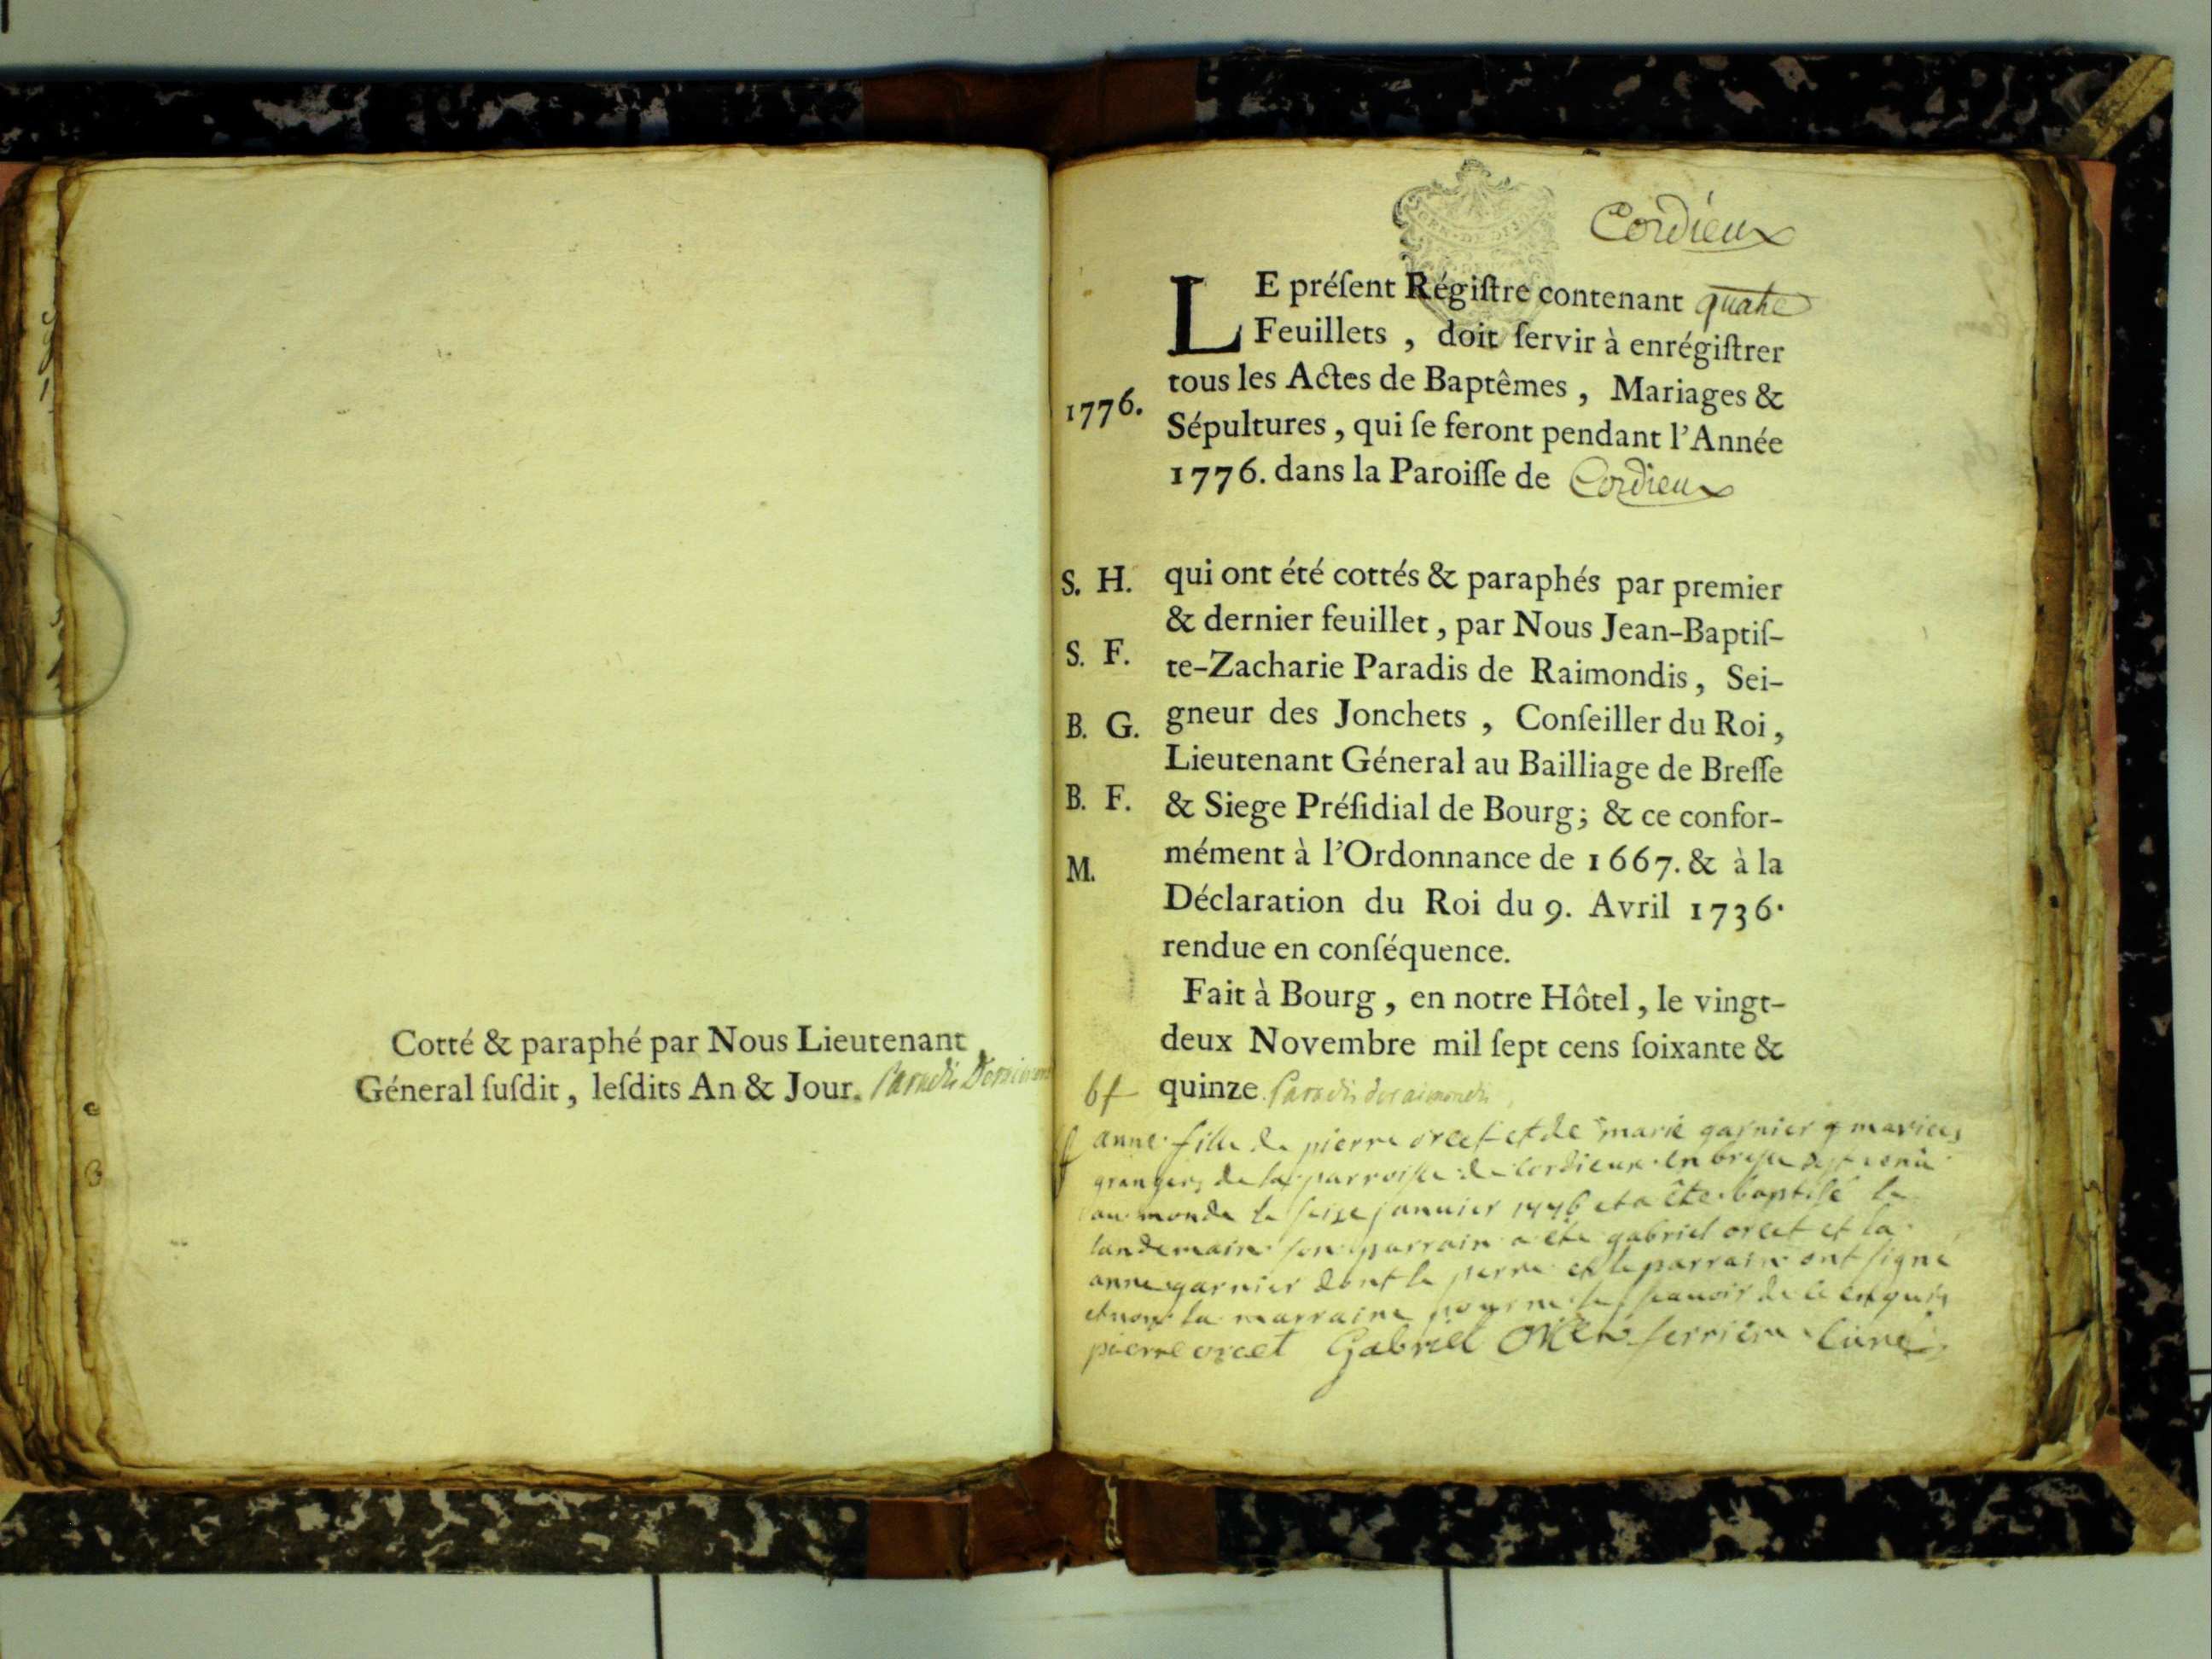 Cotté & paraphé par Nous Lieutenant
Géneral ſuſdit, leſdits An & Jour. Paradis
Cordieux
LE préſent Régiſtre contenant quatre
Feuillets, doit ſervir à enrégiſtrer
tous les Actes de Baptêmes, Mariages &
1776.
Sépultures, qui ſe feront pendant l'Année
1776. dans la Paroiſſe de Cordieux
S. H. qui ont été cottés & paraphés par premier
& dernier feuillet, par Nous Jean-Baptiſ-
S. F. te-Zacharie Paradis de Raimondis, Sei-
B. G. gneur des Jonchets, Conſeiller du Roi,
Lieutenant Géneral au Bailliage de Breſſe
B. F. & Siege Préſidial de Bourg; & ce confor-
M. mément à l'Ordonnance de 1667. & à la
Déclaration du Roi du 9. Avril 1736.
rendue en conſéquence.
Fait à Bourg, en notre Hôtel, le vingt-
deux Novembre mil ſept cens ſoixante &
bf quinze. Paradis de raimondis
anne fille de pierre orcet et de marie garnier mariés
grangers de la parroisse de cordieux en bresse est venu
au monde le seize janvier 1776 et a été baptisé le
landemain son parrain a été gabriel orcet et la
anne garnier dont le perre et le parrain ont signé
et non la marraine pour ne le scavoir de ce enquis
pierre orcet Gabriel Orcet ferriere Curé